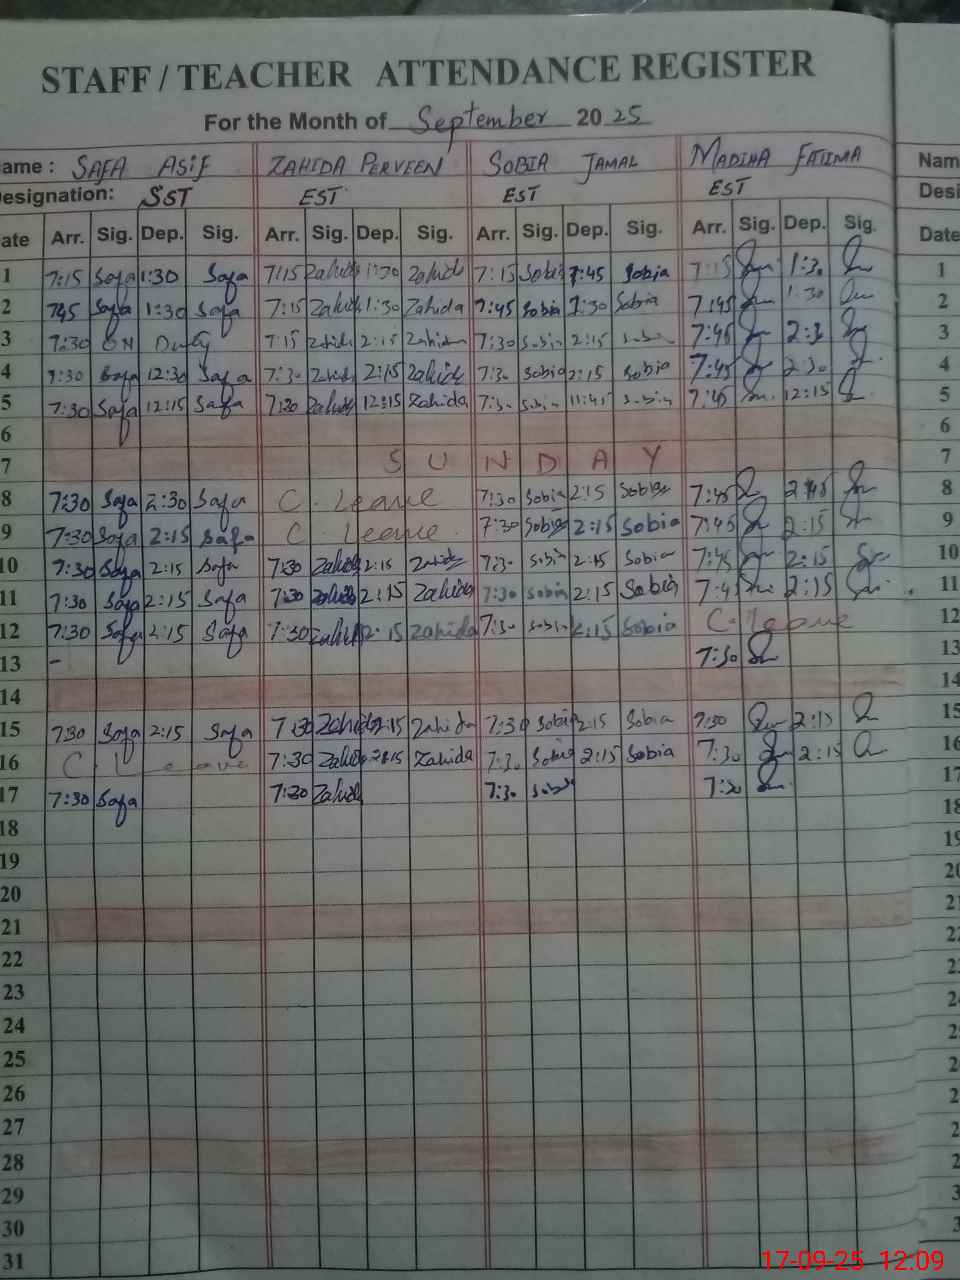 STAFF / TEACHER ATTENDANCE REGISTER
For the Month of September 2025
ame : SAFA ASIF ZAHIDA PERVEEN SOBIA JAMAL MADIHA FATIMA Nam
esignation: SST EST EST EST Desi
ate Arr. Sig. Dep. Sig. Arr. Sig. Dep. Sig. Arr. Sig. Dep. Sig. Arr. Sig. Dep. Sig. Date
1 7:15 Safa 1:30 Safa 7:15 Zahida 1:30 Zahida 7:15 Sobia 1:45 Sobia 7:15 1:30 1
2 745 Safa 1:30 Safa 7:15 Zahida 1:30 Zahida 7:45 Sobia 1:30 Sobia 7:45 1:30 2
3 7:30 ON Duty 7:15 Zahida 2:15 Zahida 7:30 Sobia 2:15 Sobia 7:45 2:30 3
4 7:30 Safa 12:30 Safa 7:30 Zahida 2:15 Zahida 7:30 Sobia 2:15 Sobia 7:45 2:30 4
5 7:30 Safa 12:15 Safa 7:30 Zahida 12:15 Zahida 7:30 Sobia 11:45 Sobia 7:45 12:15 5
6 6
7 SUNDAY 7
8 7:30 Safa 2:30 Safa C. Leave 7:30 Sobia 2:15 Sobia 7:45 2:45 8
9 7:30 Safa 2:15 Safa C. Leave 7:30 Sobia 2:15 Sobia 7:45 2:15 9
10 7:30 Safa 2:15 Safa 7:30 Zahida 2:15 Zahida 7:30 Sobia 2:15 Sobia 7:45 2:15 10
11 7:30 Safa 2:15 Safa 7:30 Zahida 2:15 Zahida 7:30 Sobia 2:15 Sobia 7:45 2:15 11
12 7:30 Safa 2:15 Safa 7:30 Zahida 2:15 Zahida 7:30 Sobia 2:15 Sobia C. leave 12
13 - 7:30 13
14 14
15 730 Safa 2:15 Safa 7:30 Zahida 2:15 Zahida 7:30 Sobia 2:15 Sobia 7:30 2:15 15
16 C. Leave 7:30 Zahida 2:15 Zahida 7:30 Sobia 2:15 Sobia 7:30 2:15 16
17 7:30 Safa 7:30 Zahida 7:30 Sobia 7:30 17
18 18
19 19
20 20
21 21
22 22
23 2
24 24
25 2
26 2
27 2
28 2
29 3
30 3
31
17-09-25 12.09